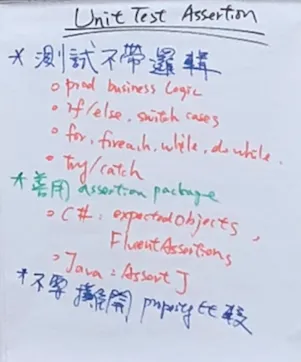 Unit Test Assertion
* 測試不帶邏輯
o prod business logic
o if/else, switch cases
o for, foreach, while, do while,
o try/catch
* 善用 assertion package
o C#: expectedObjects,
FluentAssertions
o Java: AssertJ
* 不要攤開 property 比較